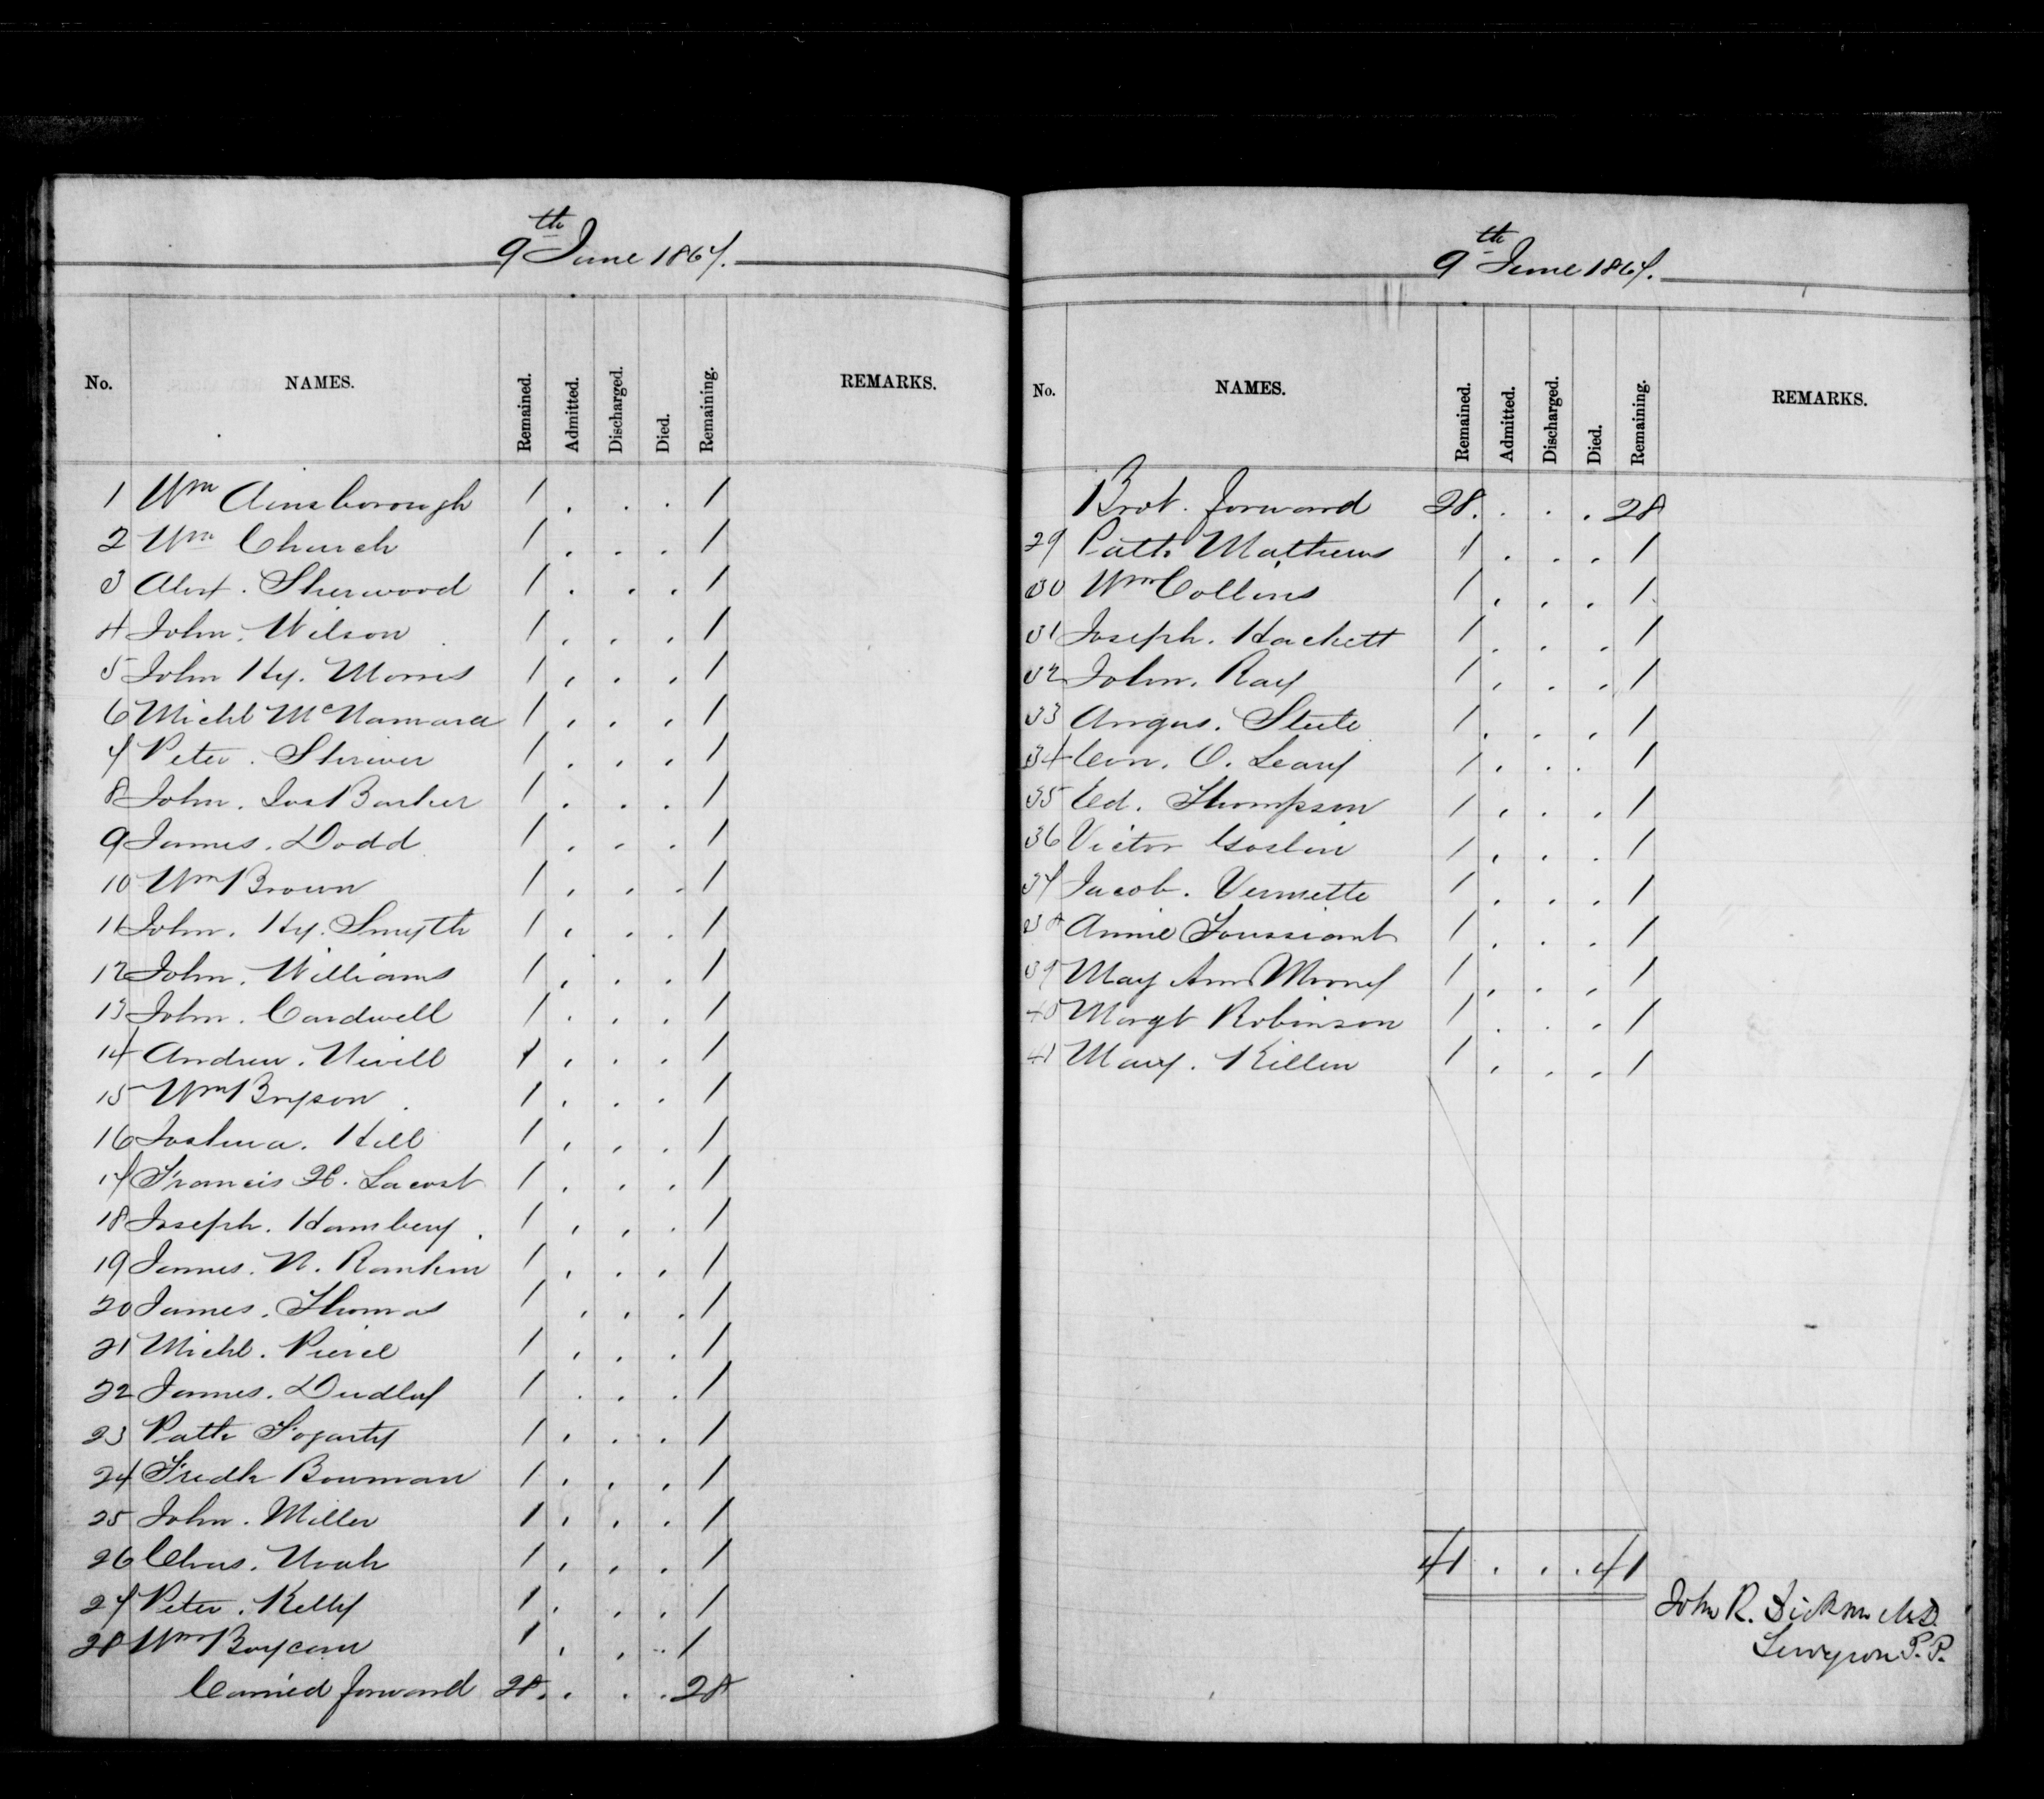 9th June 1867.
No. NAMES. Remained. Admitted. Discharged. Died. Remaining. REMARKS.
1 Wm Ainsborough 1 . . . 1
2 Wm Church 1 . . . 1
3 Alext. Sherwood 1 . . . 1
4 John. Wilson 1 . . . 1
5 John Hy. Morris 1 . . . 1
6 Michl McNamara 1 . . . 1
7 Peter. Shriver 1 . . . 1
8 John. Jos Barker 1 . . . 1
9 James. Dodd 1 . . . 1
10 Wm Brown 1 . . . 1
11 John. Hy. Smyth 1 . . . 1
12 John. Williams 1 . . . 1
13 John. Cardwell 1 . . . 1
14 Andrew. Nevill 1 . . . 1
15 Wm Bryson 1 . . . 1
16 Joshua. Hill 1 . . . 1
17 Francis H. Lacost 1 . . . 1
18 Joseph. Hambery 1 . . . 1
19 James. N. Rankin 1 . . . 1
20 James. Thomas 1 . . . 1
21 Michl. Pierce 1 . . . 1
22 James. Dudley 1 . . . 1
23 Patk Fogarty 1 . . . 1
24 Fredk Bowman 1 . . . 1
25 John. Miller 1 . . . 1
26 Chas. Noah 1 . . . 1
27 Peter. Kelly 1 . . . 1
28 Wm Boycom 1 . . . 1
Carried forward 28 . . . 28
9th June 1867.
No. NAMES. Remained. Admitted. Discharged. Died. Remaining. REMARKS.
Brot. forward 28 . . . 28
29 Patk Mathews 1 . . . 1
30 Wm Collins 1 . . . 1
31 Joseph. Hackett 1 . . . 1
32 John. Ray 1 . . . 1
33 Angus. Steele 1 . . . 1
34 Con. O. Leary 1 . . . 1
35 Ed. Thompson 1 . . . 1
36 Victor Goslin 1 . . . 1
37 Jacob. Vermette 1 . . . 1
38 Annie Toussiant 1 . . . 1
39 May Ann Mooney 1 . . . 1
40 Margt Robinson 1 . . . 1
41 Mary. Killen 1 . . . 1
41 . . . 41
John R. Dickson M.D.
Surgeon P.P.